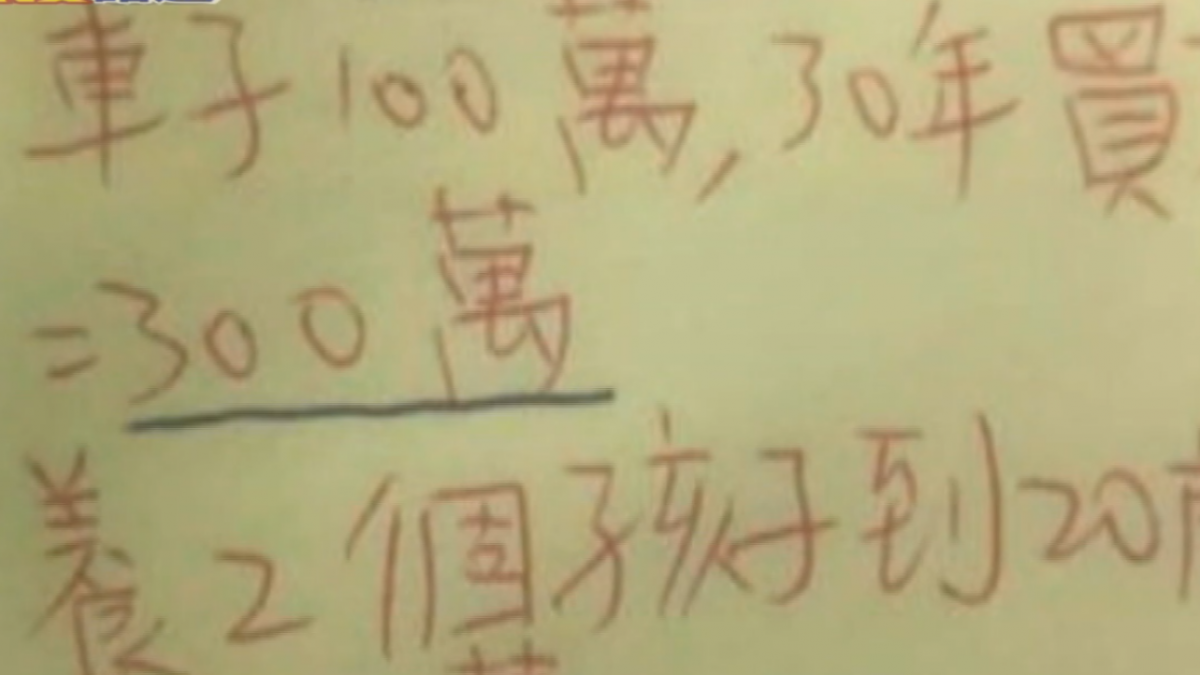 車子100萬,30年買
=300萬
養2個孩子到20